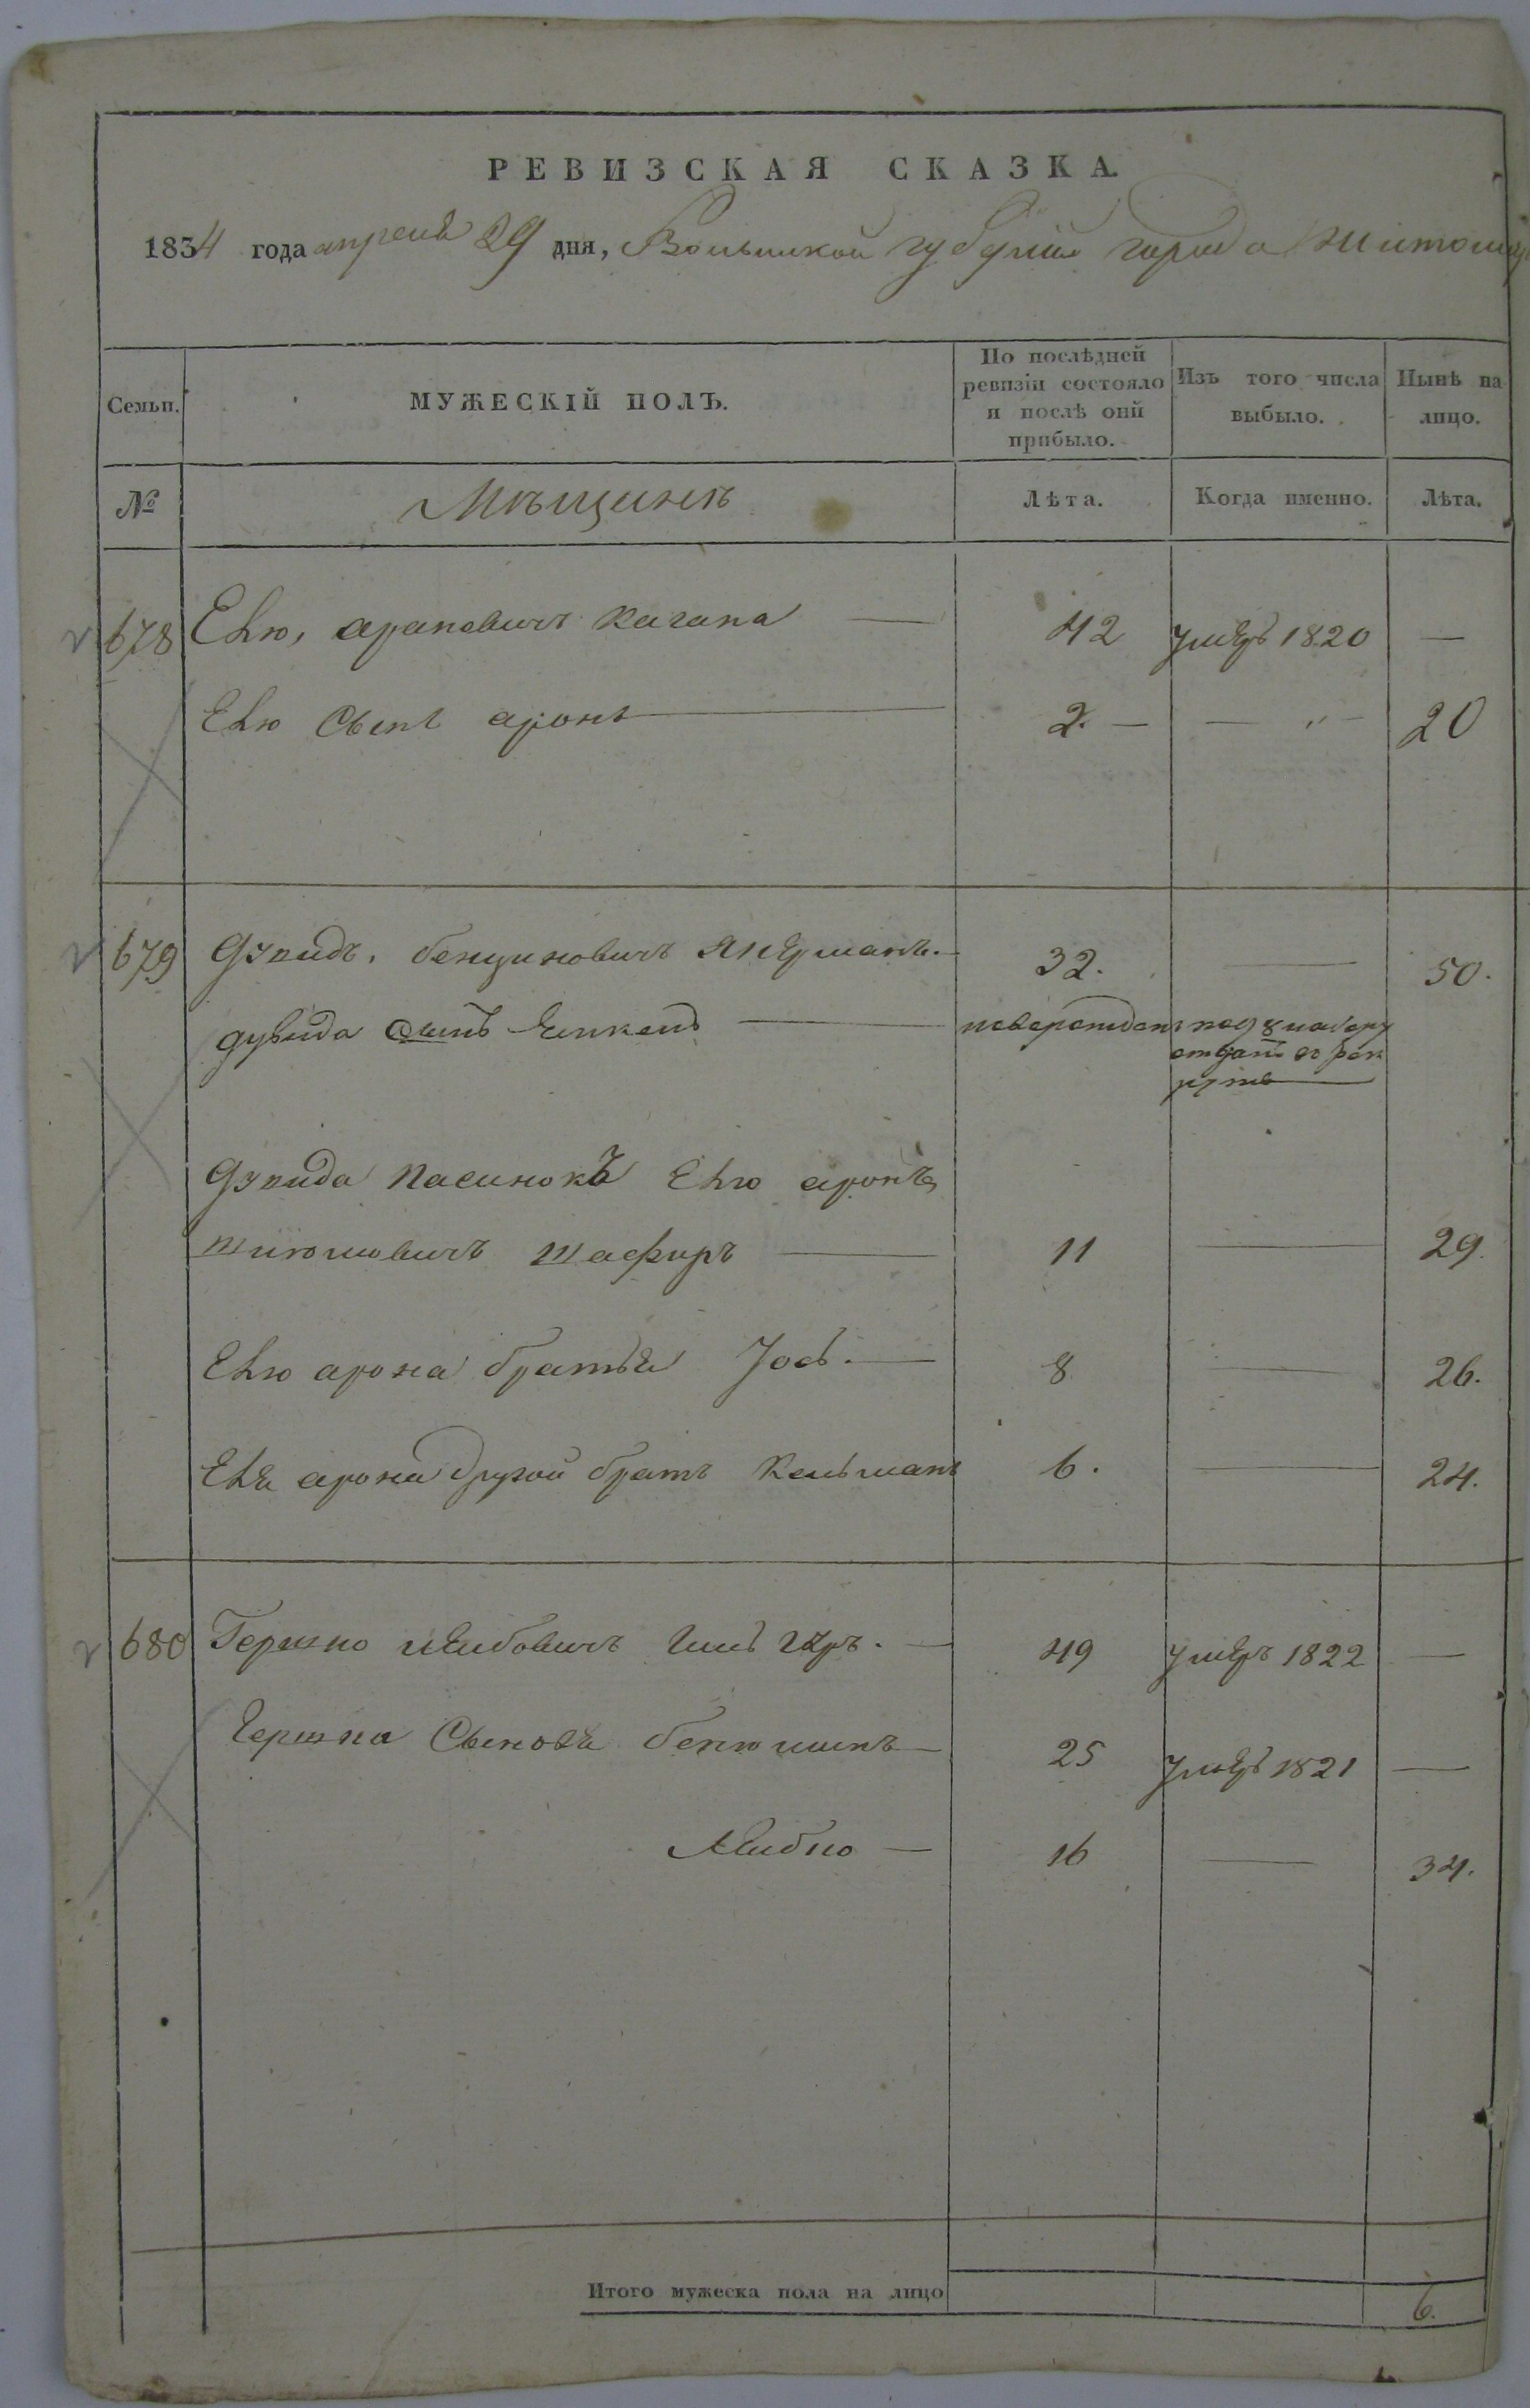 РЕВИЗСКАЯ СКАЗКА.
1834 года апреля 29 дня, Волынской губернии города Житомира
Семьи.
МУЖЕСКІЙ ПОЛЪ.
По послѣдней ревизіи состояло и послѣ оній прибыло.
Изъ того числа выбыло.
Нынѣ на лицо.
№
Мѣщинъ
Лѣта.
Когда именно.
Лѣта.
678 Евю, ароновичъ Кагана — 42 умеръ 1820 —
Евю Сынъ аронъ — 2. — — „ — 20
679 Дувидъ. бенционовичъ — 32. — 50.
дувида сынъ — под 8 набору
отданъ въ рек
руты
Дувида пасинокъ Евю аронъ
шафиръ — 11 — 29.
Евю арона братья Іось. — 8 — 26.
Евя арона другой братъ Кельманъ 6. — 24.
680 Гершко лейбовичъ — 49 умеръ 1822 —
Гершка Сыновья бенюминъ — 25 умеръ 1821 —
Лейбко — 16 — 34.
Итого мужеска пола на лицо 6.